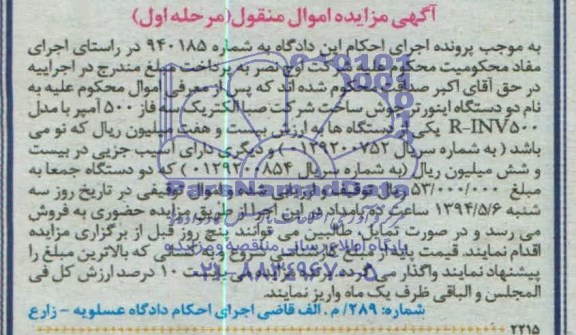 آگهی مزایده اموال منقول(مرحله اول)
به موجب پرونده اجرای احکام این دادگاه به شماره ۹۴۰۱۸۵ در راستای اجرای
مفاد محکومیت محکوم علیه شرکت اوج نصر به پرداخت مبلغ مندرج در اجراییه
در حق آقای اکبر صداقت محکوم شده اند که پس از معرفی اموال محکوم علیه به
نام دو دستگاه اینورتر جوش ساخت شرکت صبا الکتریک سه فاز ۵۰۰ آمپر با مدل
R-INV۵۰۰ یکی از دستگاه ها به ارزش بیست و هفت میلیون ریال که نو می
باشد ( به شماره سریال ۰۱۲۹۲۰۰۷۵۲) و دیگری دارای آسیب جزیی در بیست
و شش میلیون ریال (به شماره سریال ۰۱۲۹۲۰۰۸۵۴) که دو دستگاه جمعا به
مبلغ ۵۳/۰۰۰/۰۰۰ ریال توقیف و ارزیابی شده و اموال توقیفی در تاریخ روز سه
شنبه ۱۳۹۴/۵/۶ ساعت ده بامداد در این اجرا از طریق مزایده حضوری به فروش
می رسد و در صورت تمایل، طالبین می توانند پنج روز قبل از برگزاری مزایده
اقدام نمایند. قیمت پایه از مبلغ کارشناسی شروع و به کسانی که بالاترین مبلغ را
پیشنهاد نمایند واگذار می گردد. برنده مزایده می بایست ۱۰ درصد ارزش کل فی
المجلس و الباقی ظرف یک ماه واریز نمایند.
شماره: ۲۸۹/ م. الف قاضی اجرای احکام دادگاه عسلویه - زارع
۲۲۱۵
پایگاه اطلاع رسانی مناقصه و مزایده
۰۲۱-۸۸۳۴۹۶۷۰-۵